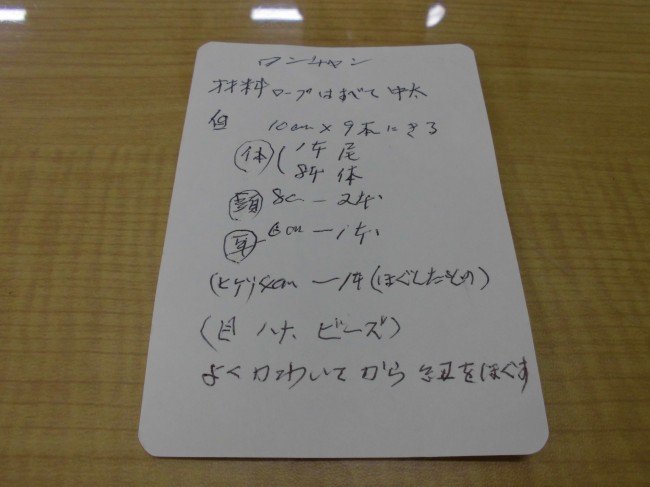 ワンチャン
材料 ロープはすべて中太
白 10cm×9本にきる
体 ( 1本 尾
8本 体
頭 8cm－2本
耳 6cm－1本
(ヒゲ) 4cm－1本(ほぐしたもの)
(目 ハナ ビーズ)
よくカわいてから をほぐす